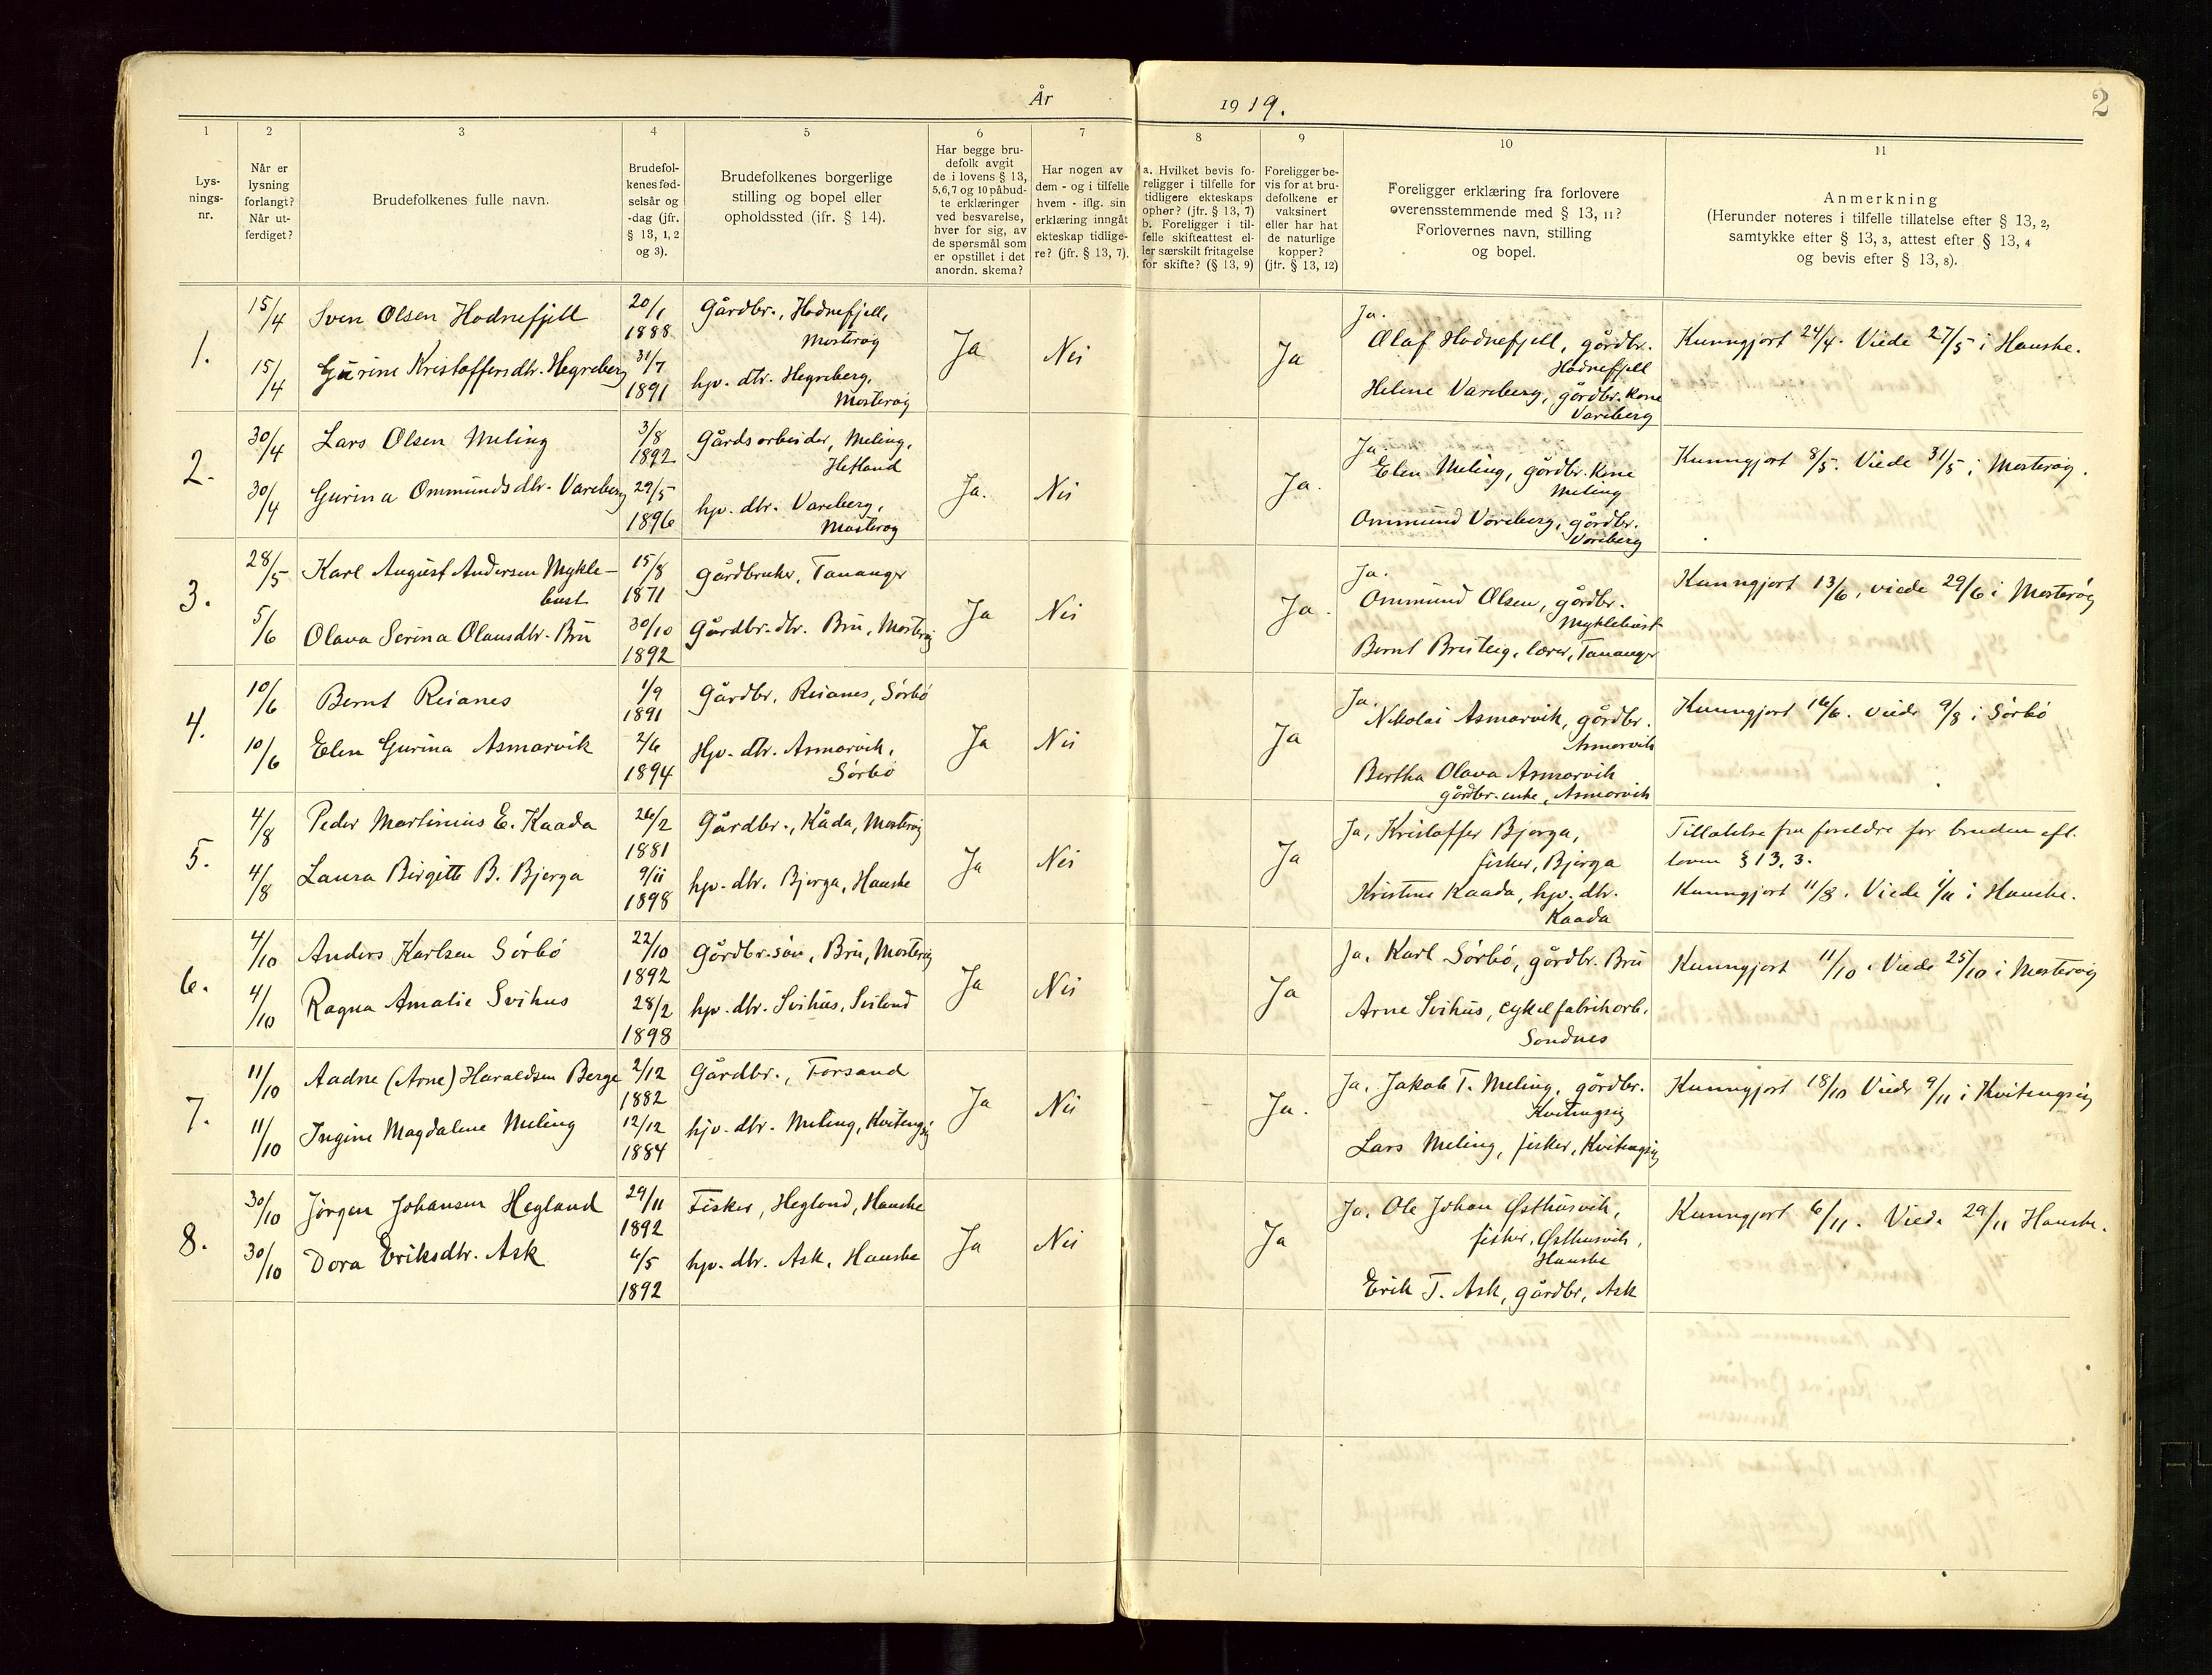 År 1919.
2
1
Lysningsnr.
2
Når er lysning forlangt? Når utferdiget?
3
Brudefolkenes fulle navn.
4
Brudefolkenes fødselsår og -dag (jfr. § 13, 1, 2 og 3).
5
Brudefolkenes borgerlige
stilling og bopel eller
opholdssted (jfr. § 14).
6
Har begge brudefolk avgit de i lovens § 13, 5, 6, 7 og 10 påbudte erklæringer ved besvarelse, hver for sig, av de spørsmål som er opstillet i det anordn. skema?
7
Har nogen av dem - og i tilfelle hvem - iflg. sin erklæring inngåt ekteskap tidligere? (jfr. § 13, 7).
8
a. Hvilket bevis foreligger i tilfelle for tidligere ekteskaps ophør? (jfr. § 13, 7)
b. Foreligger i tilfelle skifteattest eller særskilt fritagelse for skifte? (§ 13, 9)
9
Foreligger bevis for at brudefolkene er vaksinert eller har hat de naturlige kopper? (jfr. § 13, 12)
10
Foreligger erklæring fra forlovere
overensstemmende med § 13, 11?
Forlovernes navn, stilling
og bopel.
11
Anmerkning
(Herunder noteres i tilfelle tillatelse efter § 13, 2,
samtykke efter § 13, 3, attest efter § 13, 4
og bevis efter § 13, 8).
1.
15/4 Sven Olsen Hodnefjell 20/1 1888 Gårdbr., Hodnefjell, Mosterøy
15/4 Gurine Kristoffersdtr. Hegreberg 31/7 1891 hjv. dtr. Hegreberg, Mosterøy
Ja Nei Ja
Ja.
Olaf Hodnefjell, gårdbr.
Hodnefjell
Helene Vareberg, gårdbr. kone
Vareberg
Kunngjort 24/4. Viede 27/5 i Hauske.
2.
30/4 Lars Olsen Meling 3/8 1892 Gårdsarbeider, Meling, Hetland
30/4 Gurina Ommundsdtr. Vareberg 29/5 1896 hjv. dtr. Vareberg, Mosterøy
Ja. Nei Ja.
Ja.
Elen Meling, gårdbr. kone
Meling
Ommund Vareberg, gårdbr.
Vareberg
Kunngjort 8/5. Viede 31/5 i Mosterøy.
3.
28/5 Karl August Andersen Myklebust 15/8 1871 Gårdbruker, Tananger
5/6 Olava Serina Olausdtr. Bru 30/10 1892 Gårdbr. dtr. Bru, Mosterøy
Ja Nei Ja.
Ja.
Ommund Olsen, gårdbr.
Myklebust
Bernt Breiteig, lærer, Tananger
Kunngjort 13/6, viede 29/6 i Mosterøy
4.
10/6 Bernt Reianes 1/9 1891 Gårdbr, Reianes, Sørbø
10/6 Elen Gurina Asmarvik 2/6 1894 Hjv. dtr. Asmarvik, Sørbø
Ja Nei Ja
Ja.
Nikolai Asmarvik, gårdbr.
Asmarvik
Bertha Olava Asmarvik
gårdbr. enke, Asmarvik
Kunngjort 16/6. Viede 9/8 i Sørbø
5.
4/8 Peder Martinius E. Kaada 26/2 1881 Gårdbr., Kåda, Mosterøy
4/8 Laura Birgitte B. Bjerga 9/11 1898 hjv. dtr. Bjerga, Hauske
Ja Nei Ja
Ja, Kristoffer Bjerga,
fisker, Bjerga
Kristine Kaada, hjv. dtr.
Kaada
Tillatelse fra foreldre for bruden eft.
loven § 13, 3.
Kunngjort 11/8. Viede 1/11 i Hauske.
6.
4/10 Anders Karlsen Sørbø 22/10 1892 Gårdbr. søn, Bru, Mosterøy
4/10 Ragna Amalie Svihus 28/2 1898 hjv. dtr. Svihus, Sviland
Ja Nei Ja
Ja. Karl Sørbø, gårdbr. Bru
Arne Svihus, cykelfabrikarb.
Sandnes
Kunngjort 11/10. Viede 25/10 i Mosterøy
7.
11/10 Aadne (Arne) Haraldsen Berge 2/12 1882 Gårdbr., Forsand
11/10 Ingine Magdalene Meling 12/12 1884 hjv. dtr. Meling, Kvitingsøy
Ja Nei Ja.
Ja. Jakob T. Meling, gårdbr.
Kvitingsøy
Lars Meling, fisker, Kvitingsøy
Kunngjort 18/10 Viede 9/11 i Kvitingsøy
8.
30/10 Jørgen Johansen Hegland 29/11 1892 Fisker, Hegland, Hauske
30/10 Dora Eriksdtr. Ask 4/5 1892 hjv. dtr. Ask, Hauske
Ja Nei Ja
Ja, Ole Johan Østhusvik,
fisker, Østhusvik,
Hauske
Erik T. Ask, gårdbr, Ask
Kunngjort 6/11. Viede 29/11 Hauske.